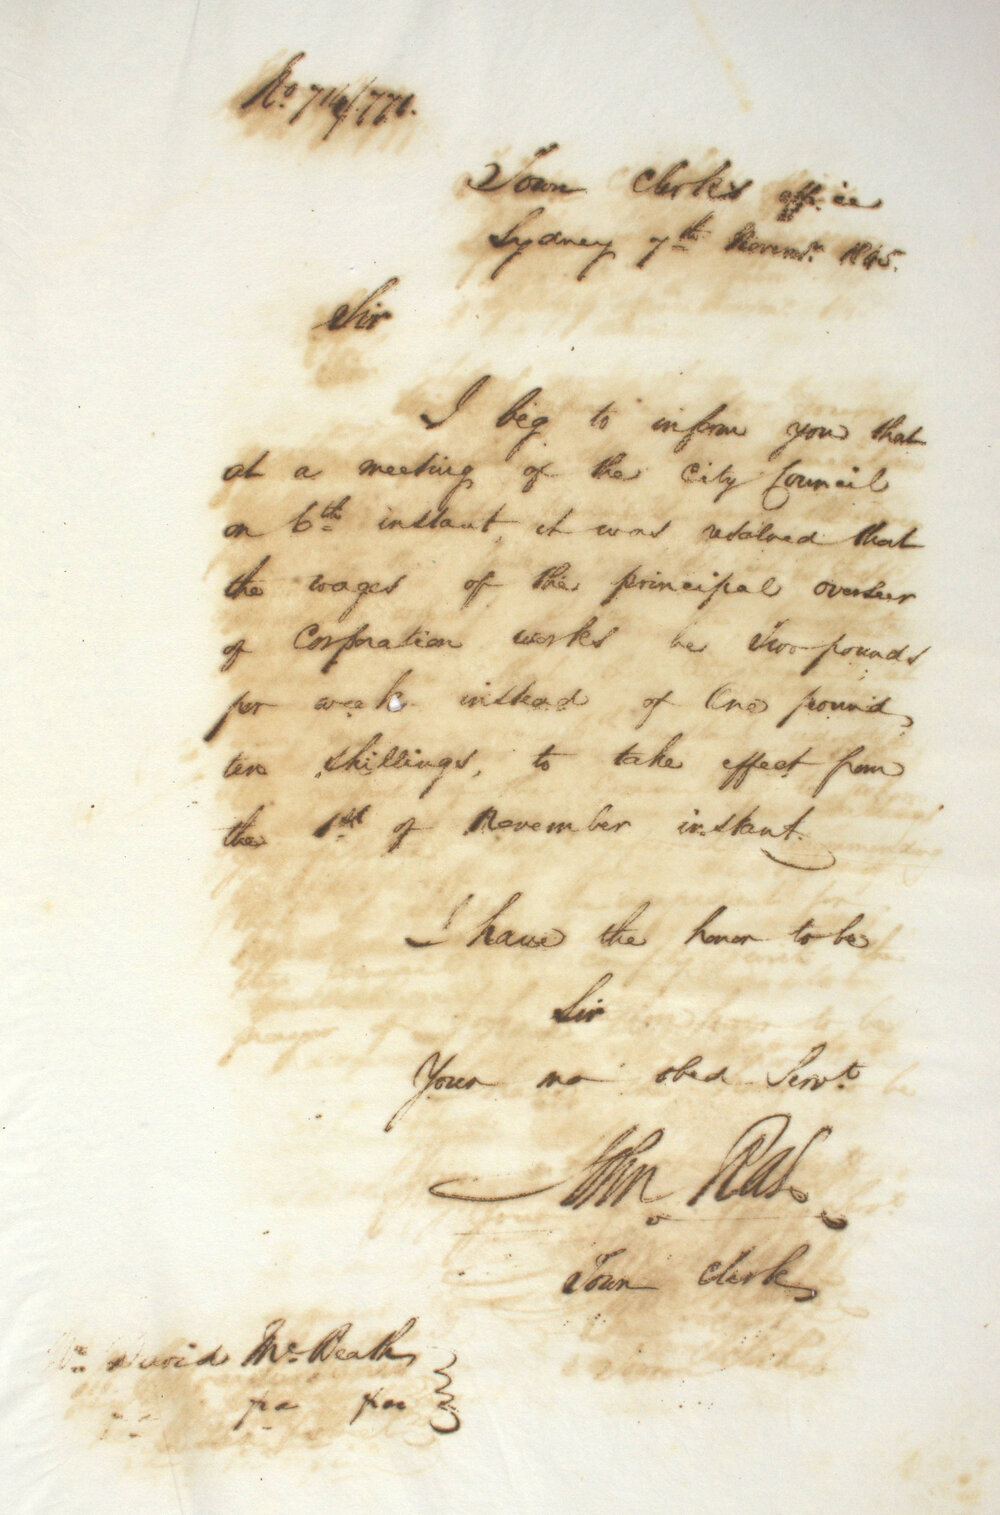 Town Clerk's office
Sydney 7th Novembr. 1845.
Sir
I beg to inform you that
at a meeting of the City Council
on 6th instant, it was resolved that
the wages of the principal overseer
of Corporation works be Two pounds
per week instead of One pound
ten shillings, to take effect from
the 1st of November instant.
I have the honor to be
Sir
Your mo obed Servt.
John Rae
Town Clerk
David Mc.Beath